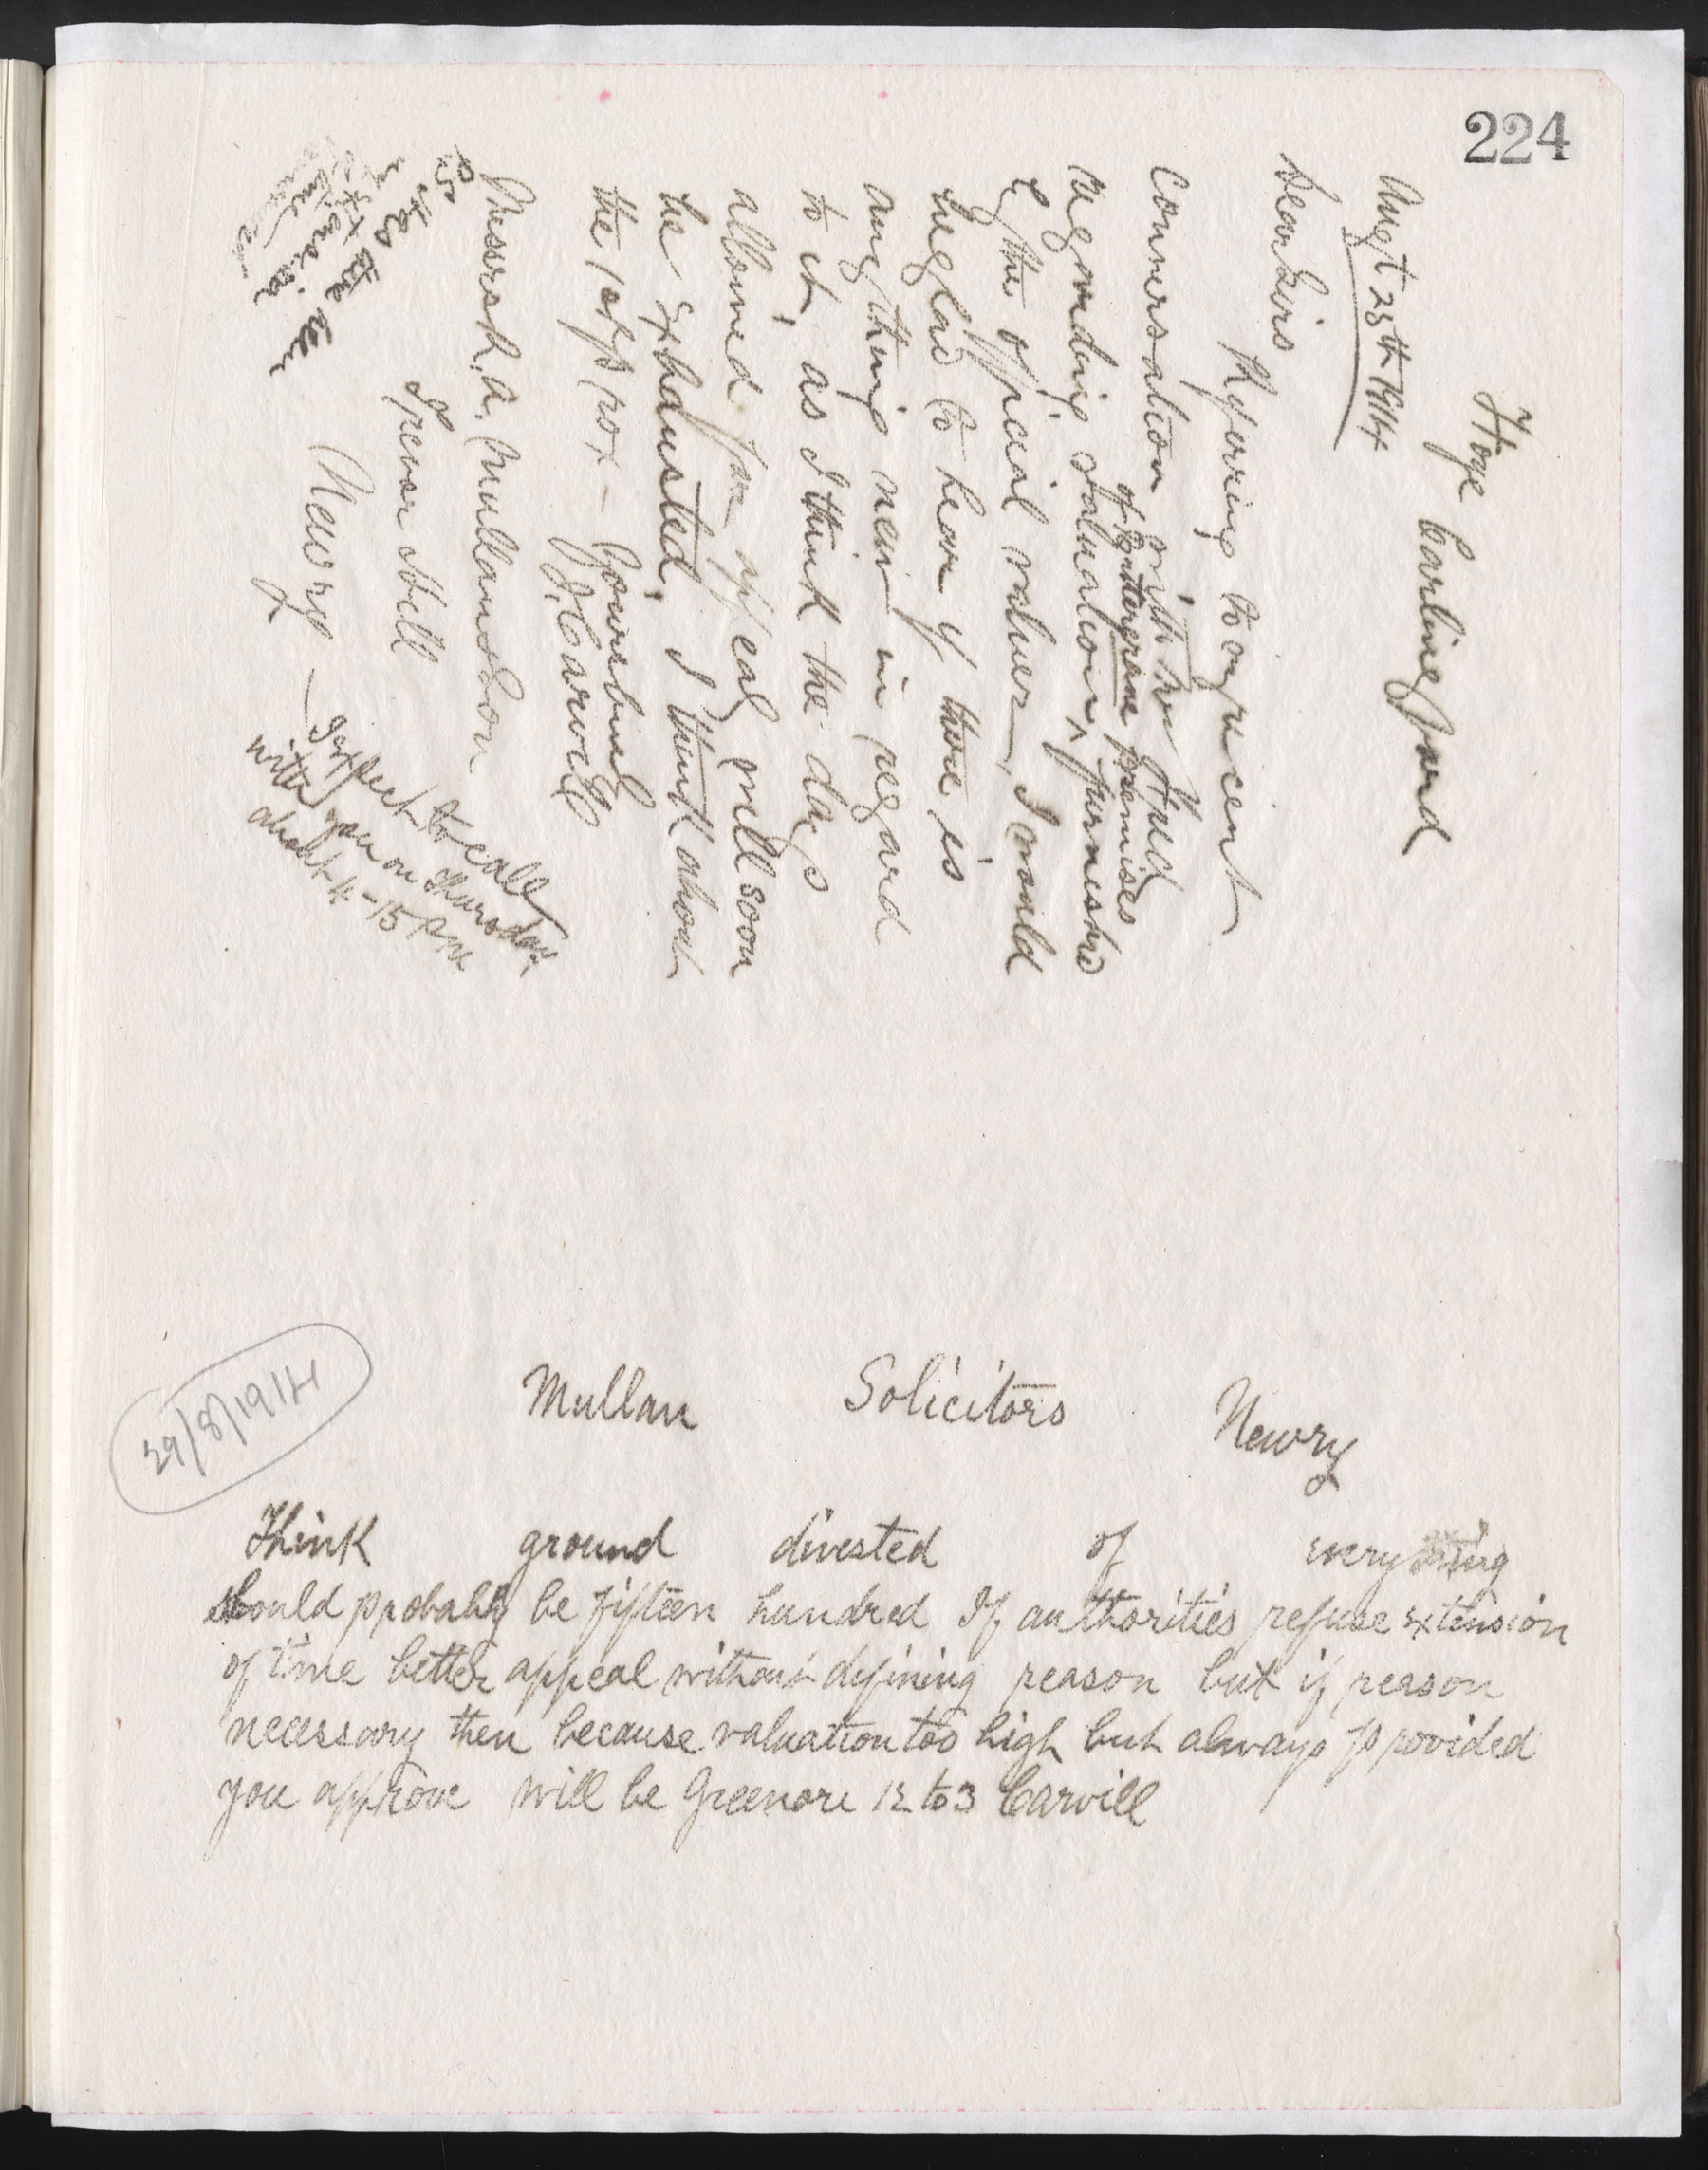 224
Hoye Carlingford
Augt 25th 1914
Dear Sirs
Referring to my recent
Conversation with Mr Fred
of Watergrasse premises
regarding valuation, furnished
by the official valuer, I would
be glad to hear if there is
anything new in regard
to it, as I think the days
allowed for appeal will soon
be exhausted. I think about
the 1st prox –
Yours truly
J. Carvill
Messrs H. A. Mullan & Son
Trevor Hill
Newry –
I expect to call
with you on Thursday
about 4-15 pm
29/8/1914
Mullan Solicitors Newry
Think ground divested of everything
should probably be fifteen hundred If authorities refuse extension
of time better appeal without defining reason but if reason
necessary then because valuation too high but always provided
you approve will be Greenore 12 to 3 Carvill